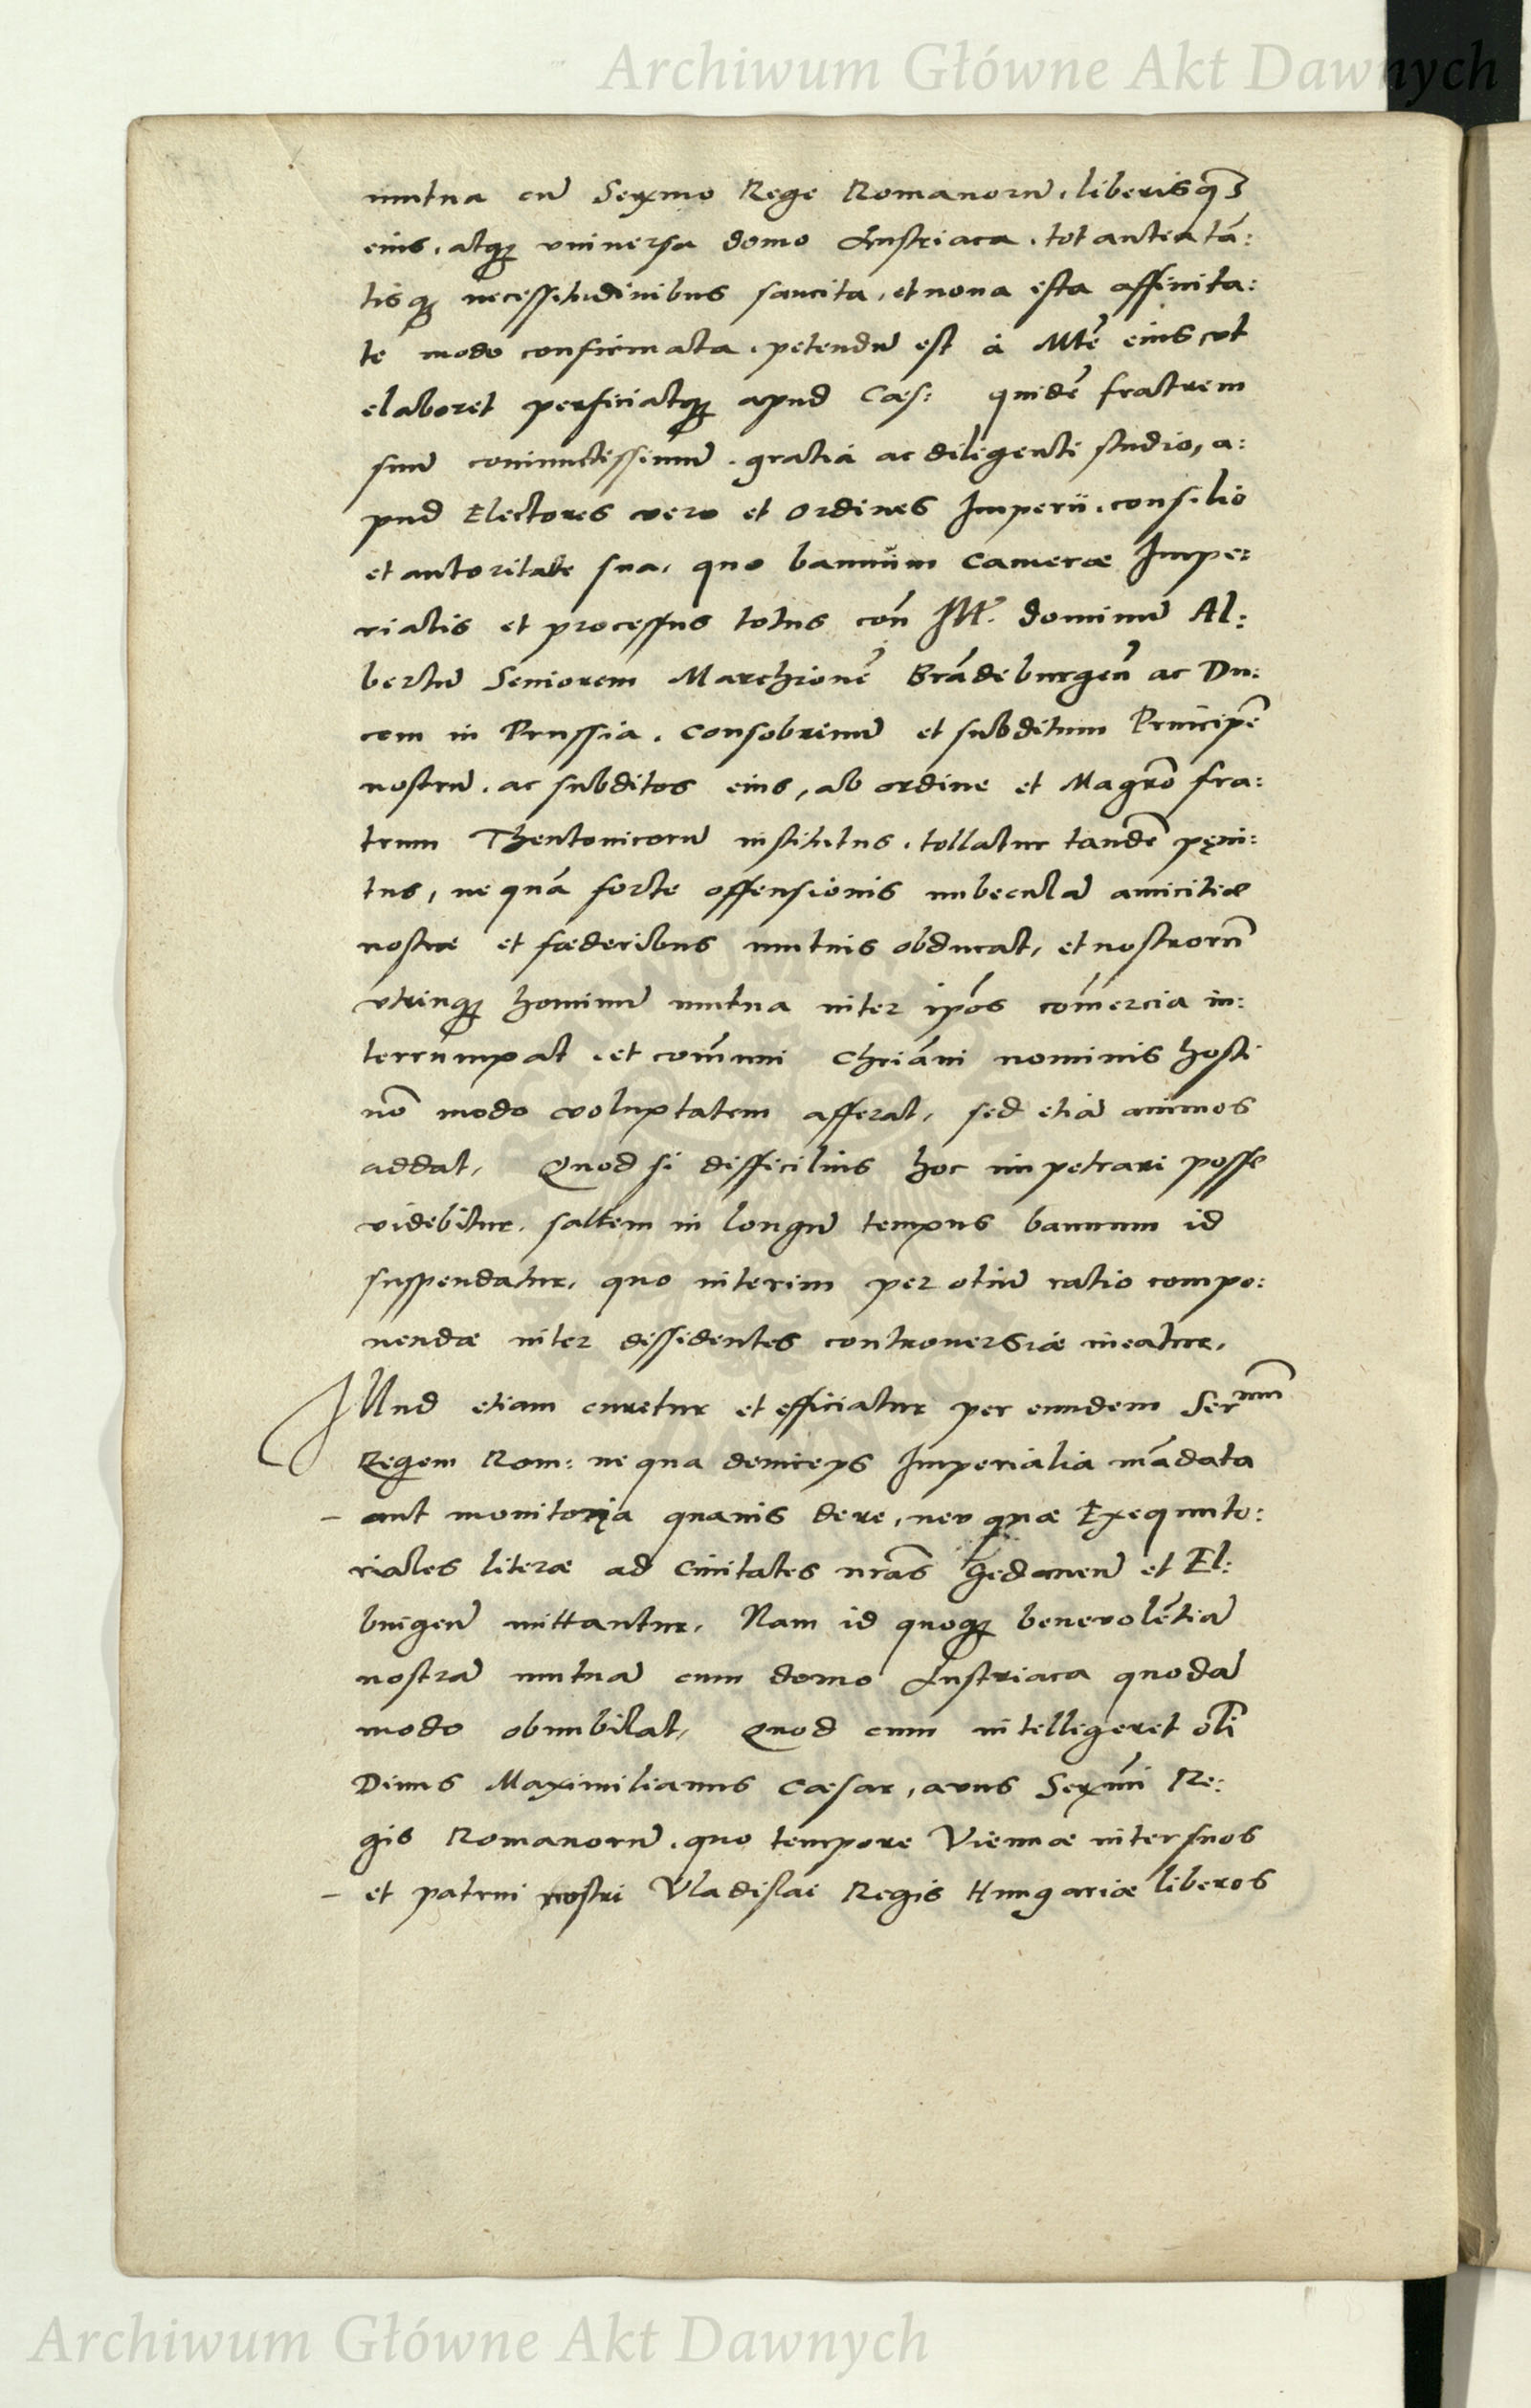 Archiwum Główne Akt Dawnych
mutua cũ Serx̃mo Rege Romanorũ, liberisq3
eius, atq3 vniuersa domo Austriaca, tot antea tã:
tisq3 necessitudinibus sancita, et noua ista affinita:
te modo confirmata, petendũ est à Mte͂ eius vt
elaboret perficiatq3 apud Cæs: quidẽ fratrem
suũ coniunctissimũ, gratia ac diligenti studio, a:
pud Electores vero et ordines Imperii, consilio
et autoritate sua, quo bannũm Cameræ Impe:
rialis et processus totus coñ Ill. dominũ Al:
bertũ Seniorem Marchionẽ Brãdeburgeñ ac Du:
cem in Prussia, consobrinũ et subditum Principẽ
nostrũ, ac subditos eius, ab ordine et Magr̃o fra:
trum Theutonicorũ institutus, tollatur tandẽ pęni:
tus, ne quã forte offensionis nubeculã amicitiæ
nostræ et fœderibus mutuis obducat, et nostrorũ
vtrinq3 hominũ mutua inter ip̃os com̃ercia in:
terrumpat, et com̃uni Chr̃iãni nominis hosti
nõ modo voluptatem afferat, sed etiã animos
addat, Quod si difficilius hoc impetrari posse
videbitur, saltem in longũ tempus bannum id
suspendatur, quo interim per otiũ ratio compo:
nendæ inter dissidentes controuersiæ ineatur,
Illud etiam curetur et efficiatur per eundem Ser mum
Regem Rom: ne qua deinceps Imperialia mãdata
– aut monitoria quauis de re, neu quæ Exequuto:
riales literæ ad Ciuitates nr̃as Gedaneñ et El:
bingeñ mittantur, Nam id quoq3 beneuolẽtiã
nostrã mutuã cum domo Austriaca quodã
modo obnubilat, Quod cum intellegeret olĩ
Diuus Maximilianus Cæsar, auus Serx̃mi Re:
gis Romanorũ, quo tempore Viennæ inter suos
– et patrui nostri Vladislai Regis Hungariæ liberos
Archiwum Główne Akt Dawnych